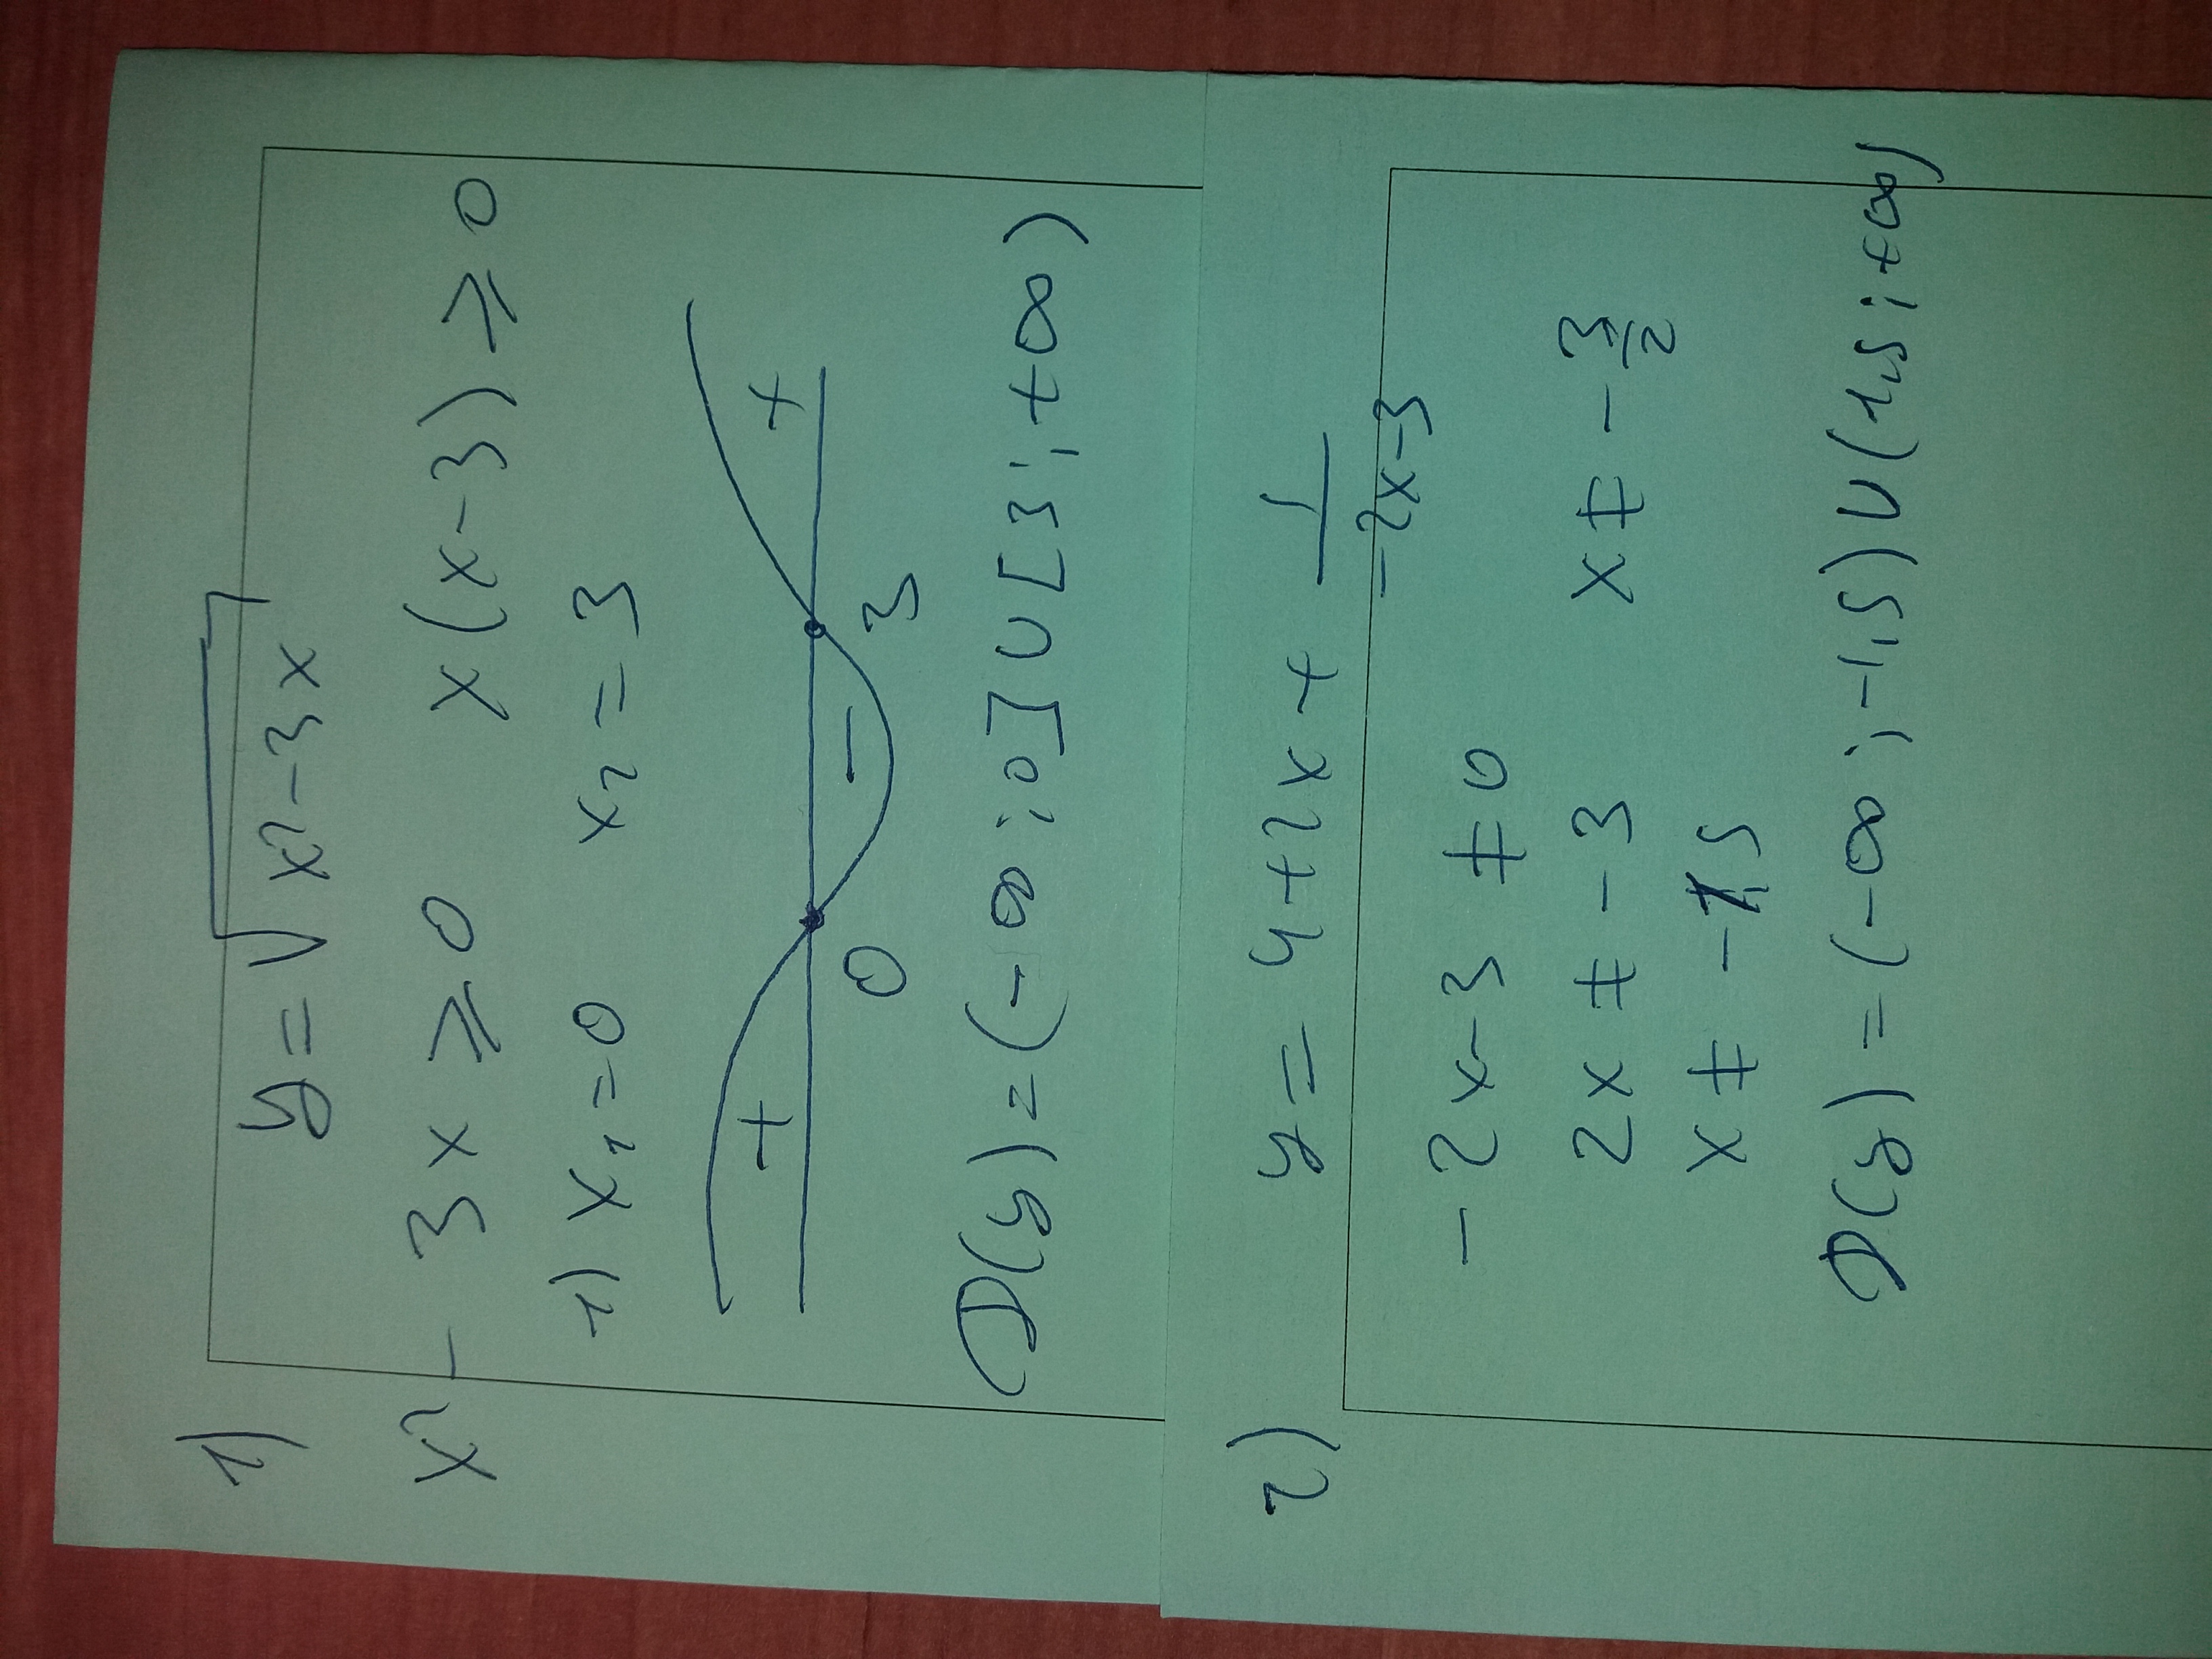 1)
y = √x²-3x
x² - 3x ≥ 0   x(x-3) ≥ 0
1) x₁=0   x₂=3
+ - +
0 3
D(y)=(-∞;0]∪[3;+∞)
2) y = 4+2x + 1/-2x-3
-2x-3 ≠ 0
2x ≠ -3   x ≠ -3/2
x ≠ -1,5
D(y)=(-∞;-1,5)∪(1,5;+∞)